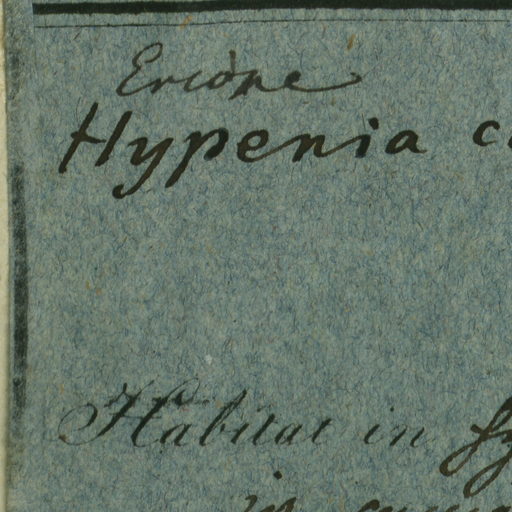 Eriope
Hypenia
Habitat in
in